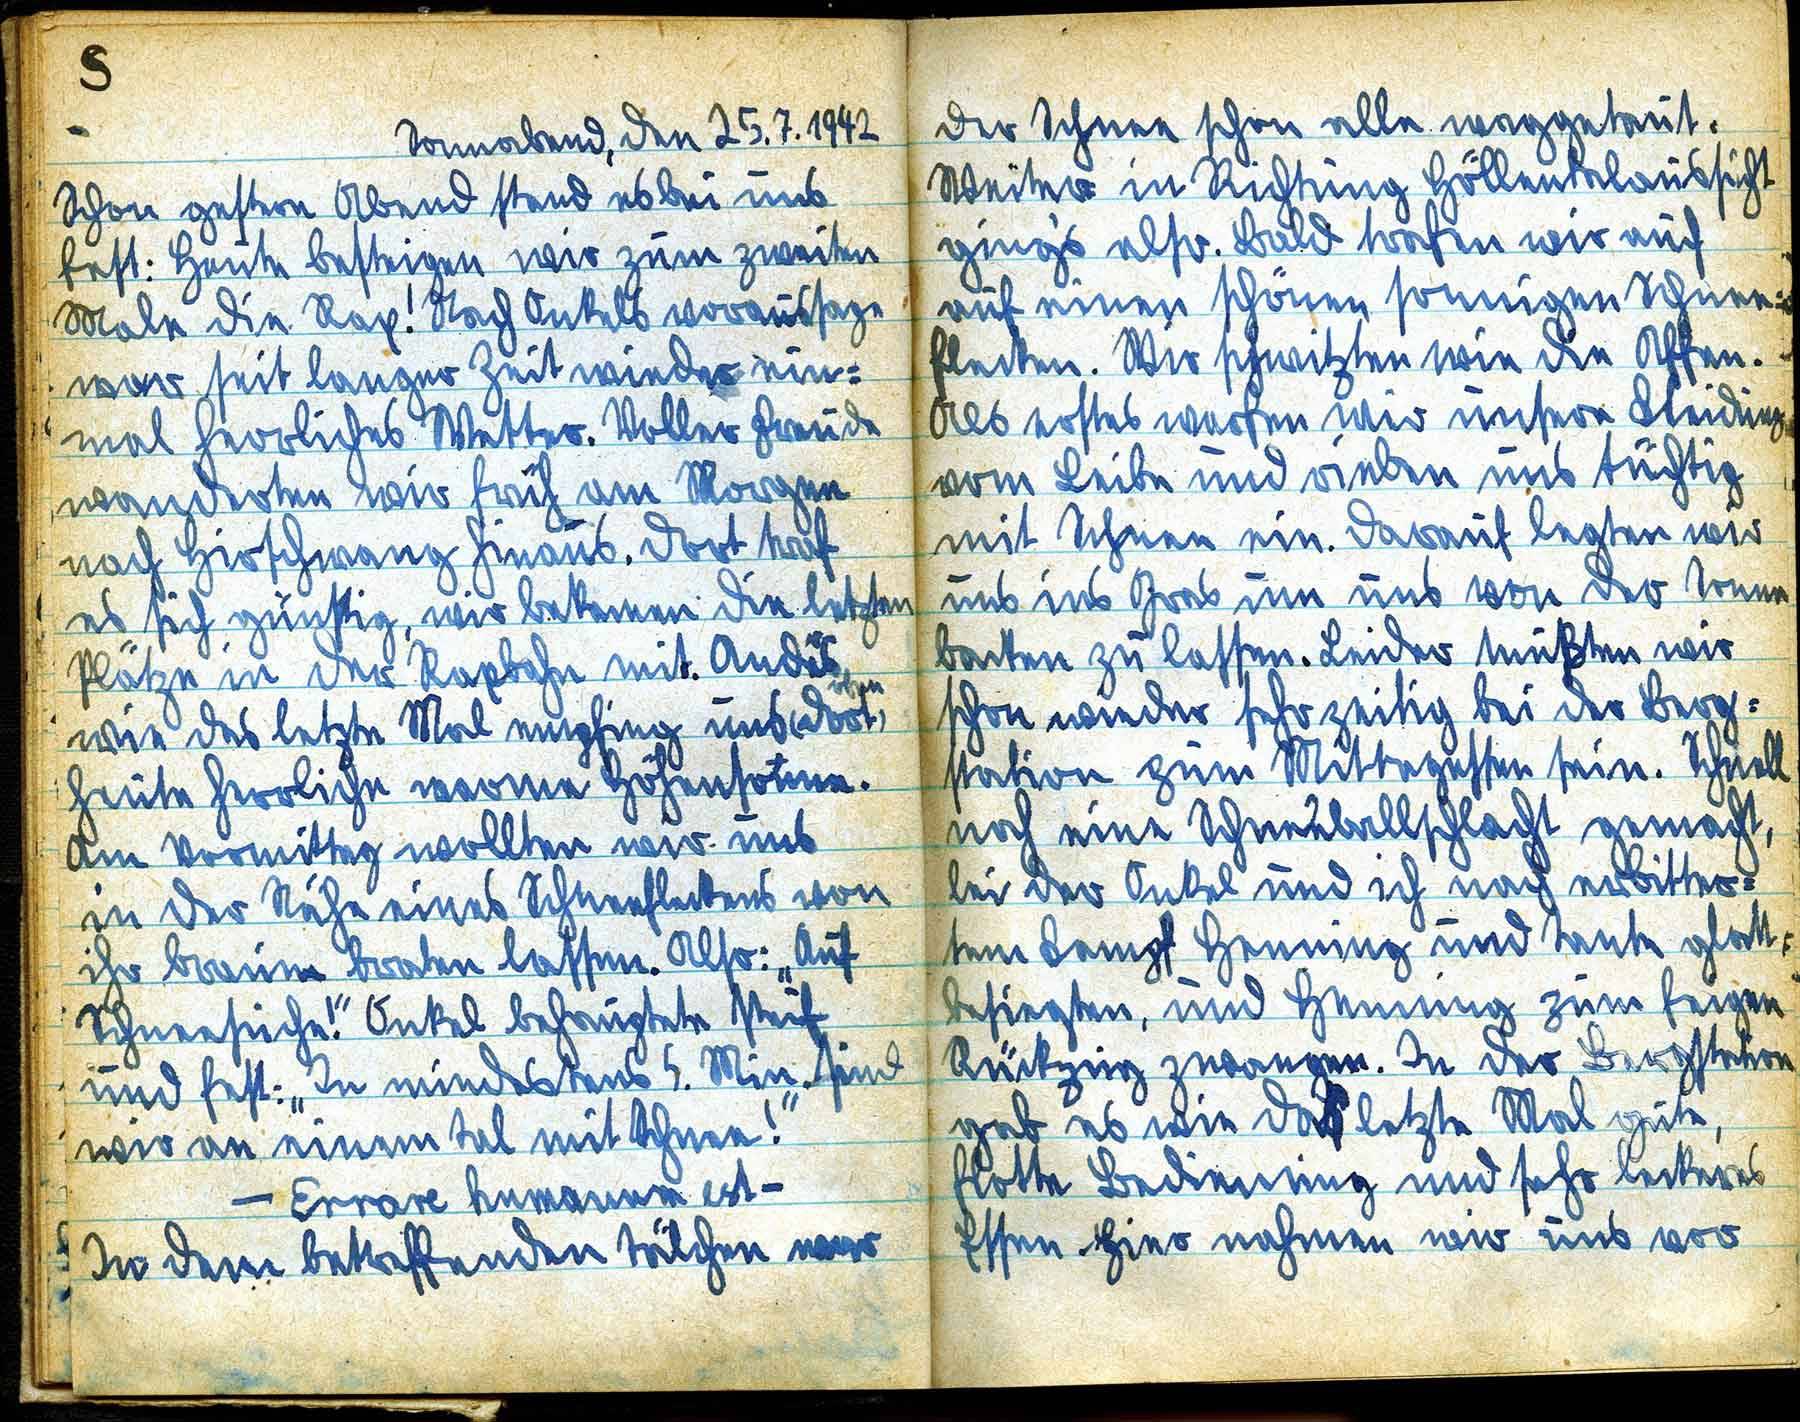 S
Sonnabend, den 25.7.1942
Schon gestern Abend stand es bei uns
fest: Heute besteigen wir zum zweiten
Male die Rax! Nach Onkels voraussage
war seit langer Zeit wieder ein=
mal herrliches Wetter. Voller Freude
wanderten wir früh am Morgen
nach Hirschwang hinaus. Dort traf
es sich günstig, wir bekamen die letzten
Plätze in der Raxbahn mit. Anders
wie das letzte Mal empfing uns (dort)
oben
heute herrliche warme Höhensonne.
Am Vormittag wollten wir uns
in der Nähe eines Schneefleckens von
ihr braun braten lassen. Also: „Auf
Schneesuche!" Onkel behauptete steif
und fest: „In mindestens 5. Min. sind
wir an einem Tal mit Schnee!"
— Errare humanum est —
In dem betreffenden Tälchen war
der Schnee schon alle weggetaut.
Weiter in Richtung Höllentalaussicht
ging's also. Bald trafen wir auch
auf einen schönen sonnigen Schnee=
flecken. Wir schwitzten wie die Affen.
Als erstes warfen wir unsere Kleidung
vom Leibe und rieben uns tüchtig
mit Schnee ein. Darauf legten wir
uns ins Gras um uns von der Sonne
backen zu lassen. Leider mußten wir
schon wieder sehr zeitig bei der Berg=
station zum Mittagessen sein. Schnell
noch eine Schneeballschlacht gemacht,
bei der Onkel und ich nach erbitter=
tem Kampf Henning und Tante glatt
besiegten, und Henning zum feigen
Rückzug zwangen. In der Bergstation
gab es wie das letzte Mal gute,
flotte Bedienung und sehr leckeres
Essen. Hier nahmen wir uns vor